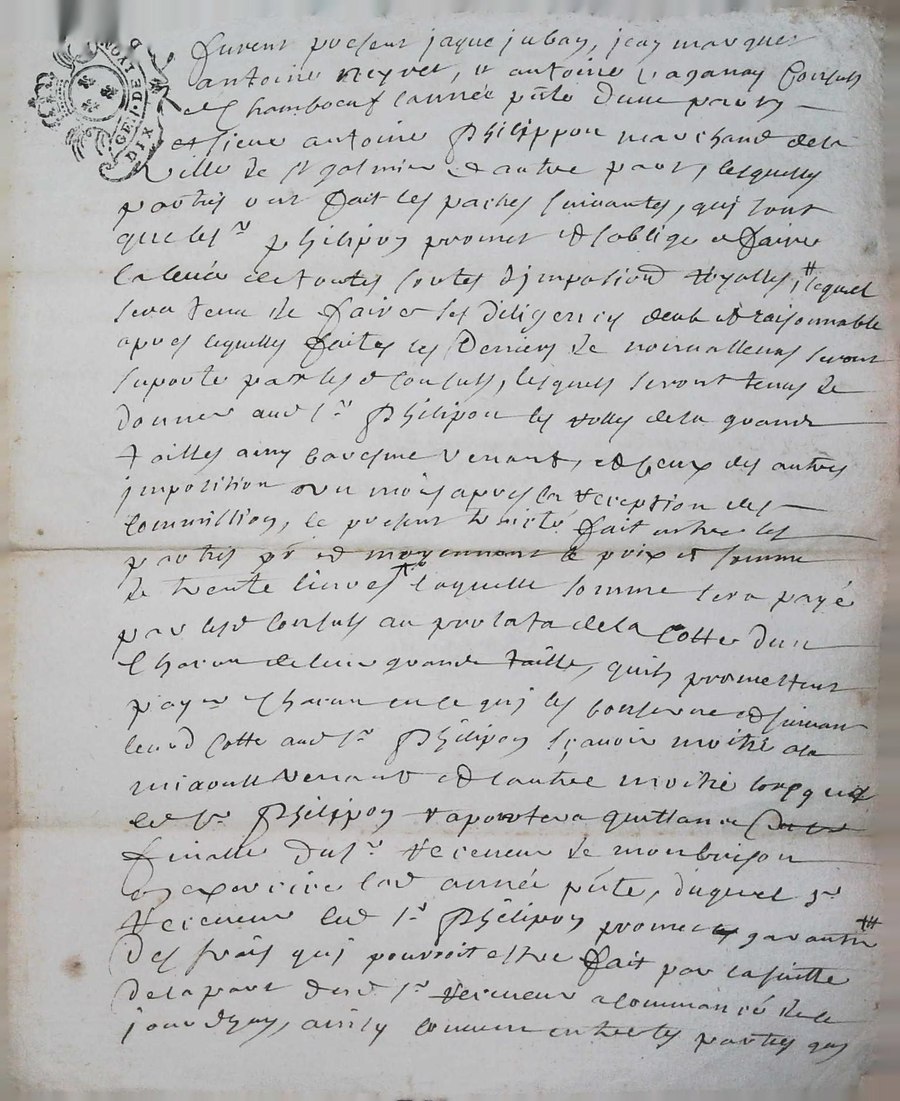 GEN. DE LYON
DIX
furent presens jaque juban, jean marquet
antoine neyret, et antoine vaganay Consuls
de Chamboeuf lannée pñte dune part
et sieur antoine philippon marchand de la
ville de st galmier dautre part, lesquelles
parties ont fait les paches suivantes, qui sont
que le sr philipon promet et soblige de faire
la levée de toutes sortes dimposions royalles, lequel
sera tenu de faire ses diligences deub et raisonnable
apres lequelles faites les deniers de nonvalleurs seront
suporte par lesd Consuls, lesquels seront tenus de
donner aud sr philipon les rolles de la grande
tailles a venant, et ceux des autres
imposition un mois apres la reception des
Commissions, le present traité fait entre les
parties moyennant le prix et somme
de trente livres laquelle somme sera payé
par lesd Consuls au prorata de la Cotte dun
Chacun de leur grande taille, quils promettent
payer Chacun en ce qui les Concerne et suivant
leurd Cotte aud sr philipon sçavoir moitié a la
miaoust venant et lautre moitié lorsque
led sr philipon raportera quittance
finalle du sr receveur de monbrison
en exercice lad année pñte, duquel sr
receveur led sr philipon promet garantir
des frais qui pourroit estre fait par la suitte
de la part dud sr receveur a Commancé de ce
jourdhuy, ainsy Convenu entre les parties qui